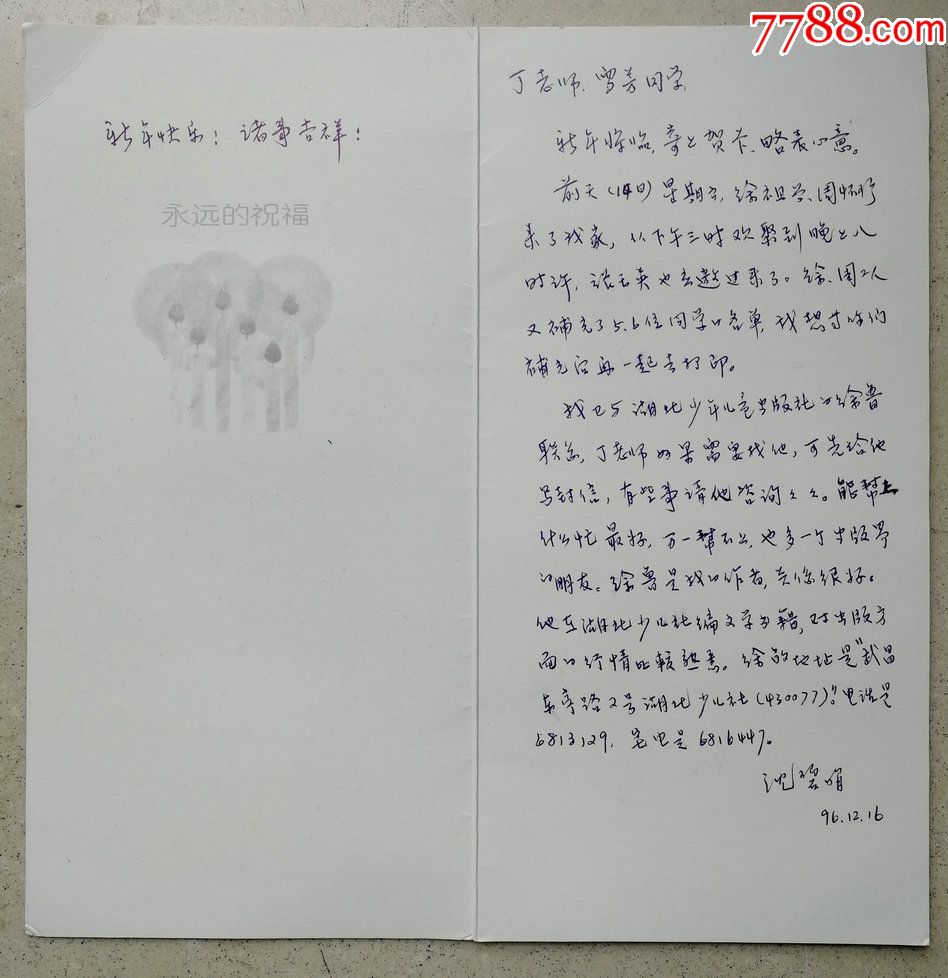 7788.com
新年快乐！诸事吉祥！
永远的祝福
丁老师、雪芳同学，
新年将临，寄上贺卡，略表心意。
前天（14日）星期六，徐祖 、周
来了我家，从下午三时欢聚到晚上八
时许， 英也去邀过来了。徐、周二人
又补充了5.6位同学的名单，我想等你们
补充后再一起去打印。
我已与湖北少年儿童出版社的徐鲁
联系，丁老师如果需要找他，可先给他
写封信，有些事请他咨询之之。能帮上
什么忙最好，万一帮不上，也多一个出版界
的朋友。徐鲁是我的作者，关系很好。
他在湖北少儿社编文学书籍，对出版方
面的行情比较熟悉。徐的地址是“武昌
东亭路2号湖北少儿社（430077）”。电话是
6813129，宅电是6816447。
沈碧
96.12.16